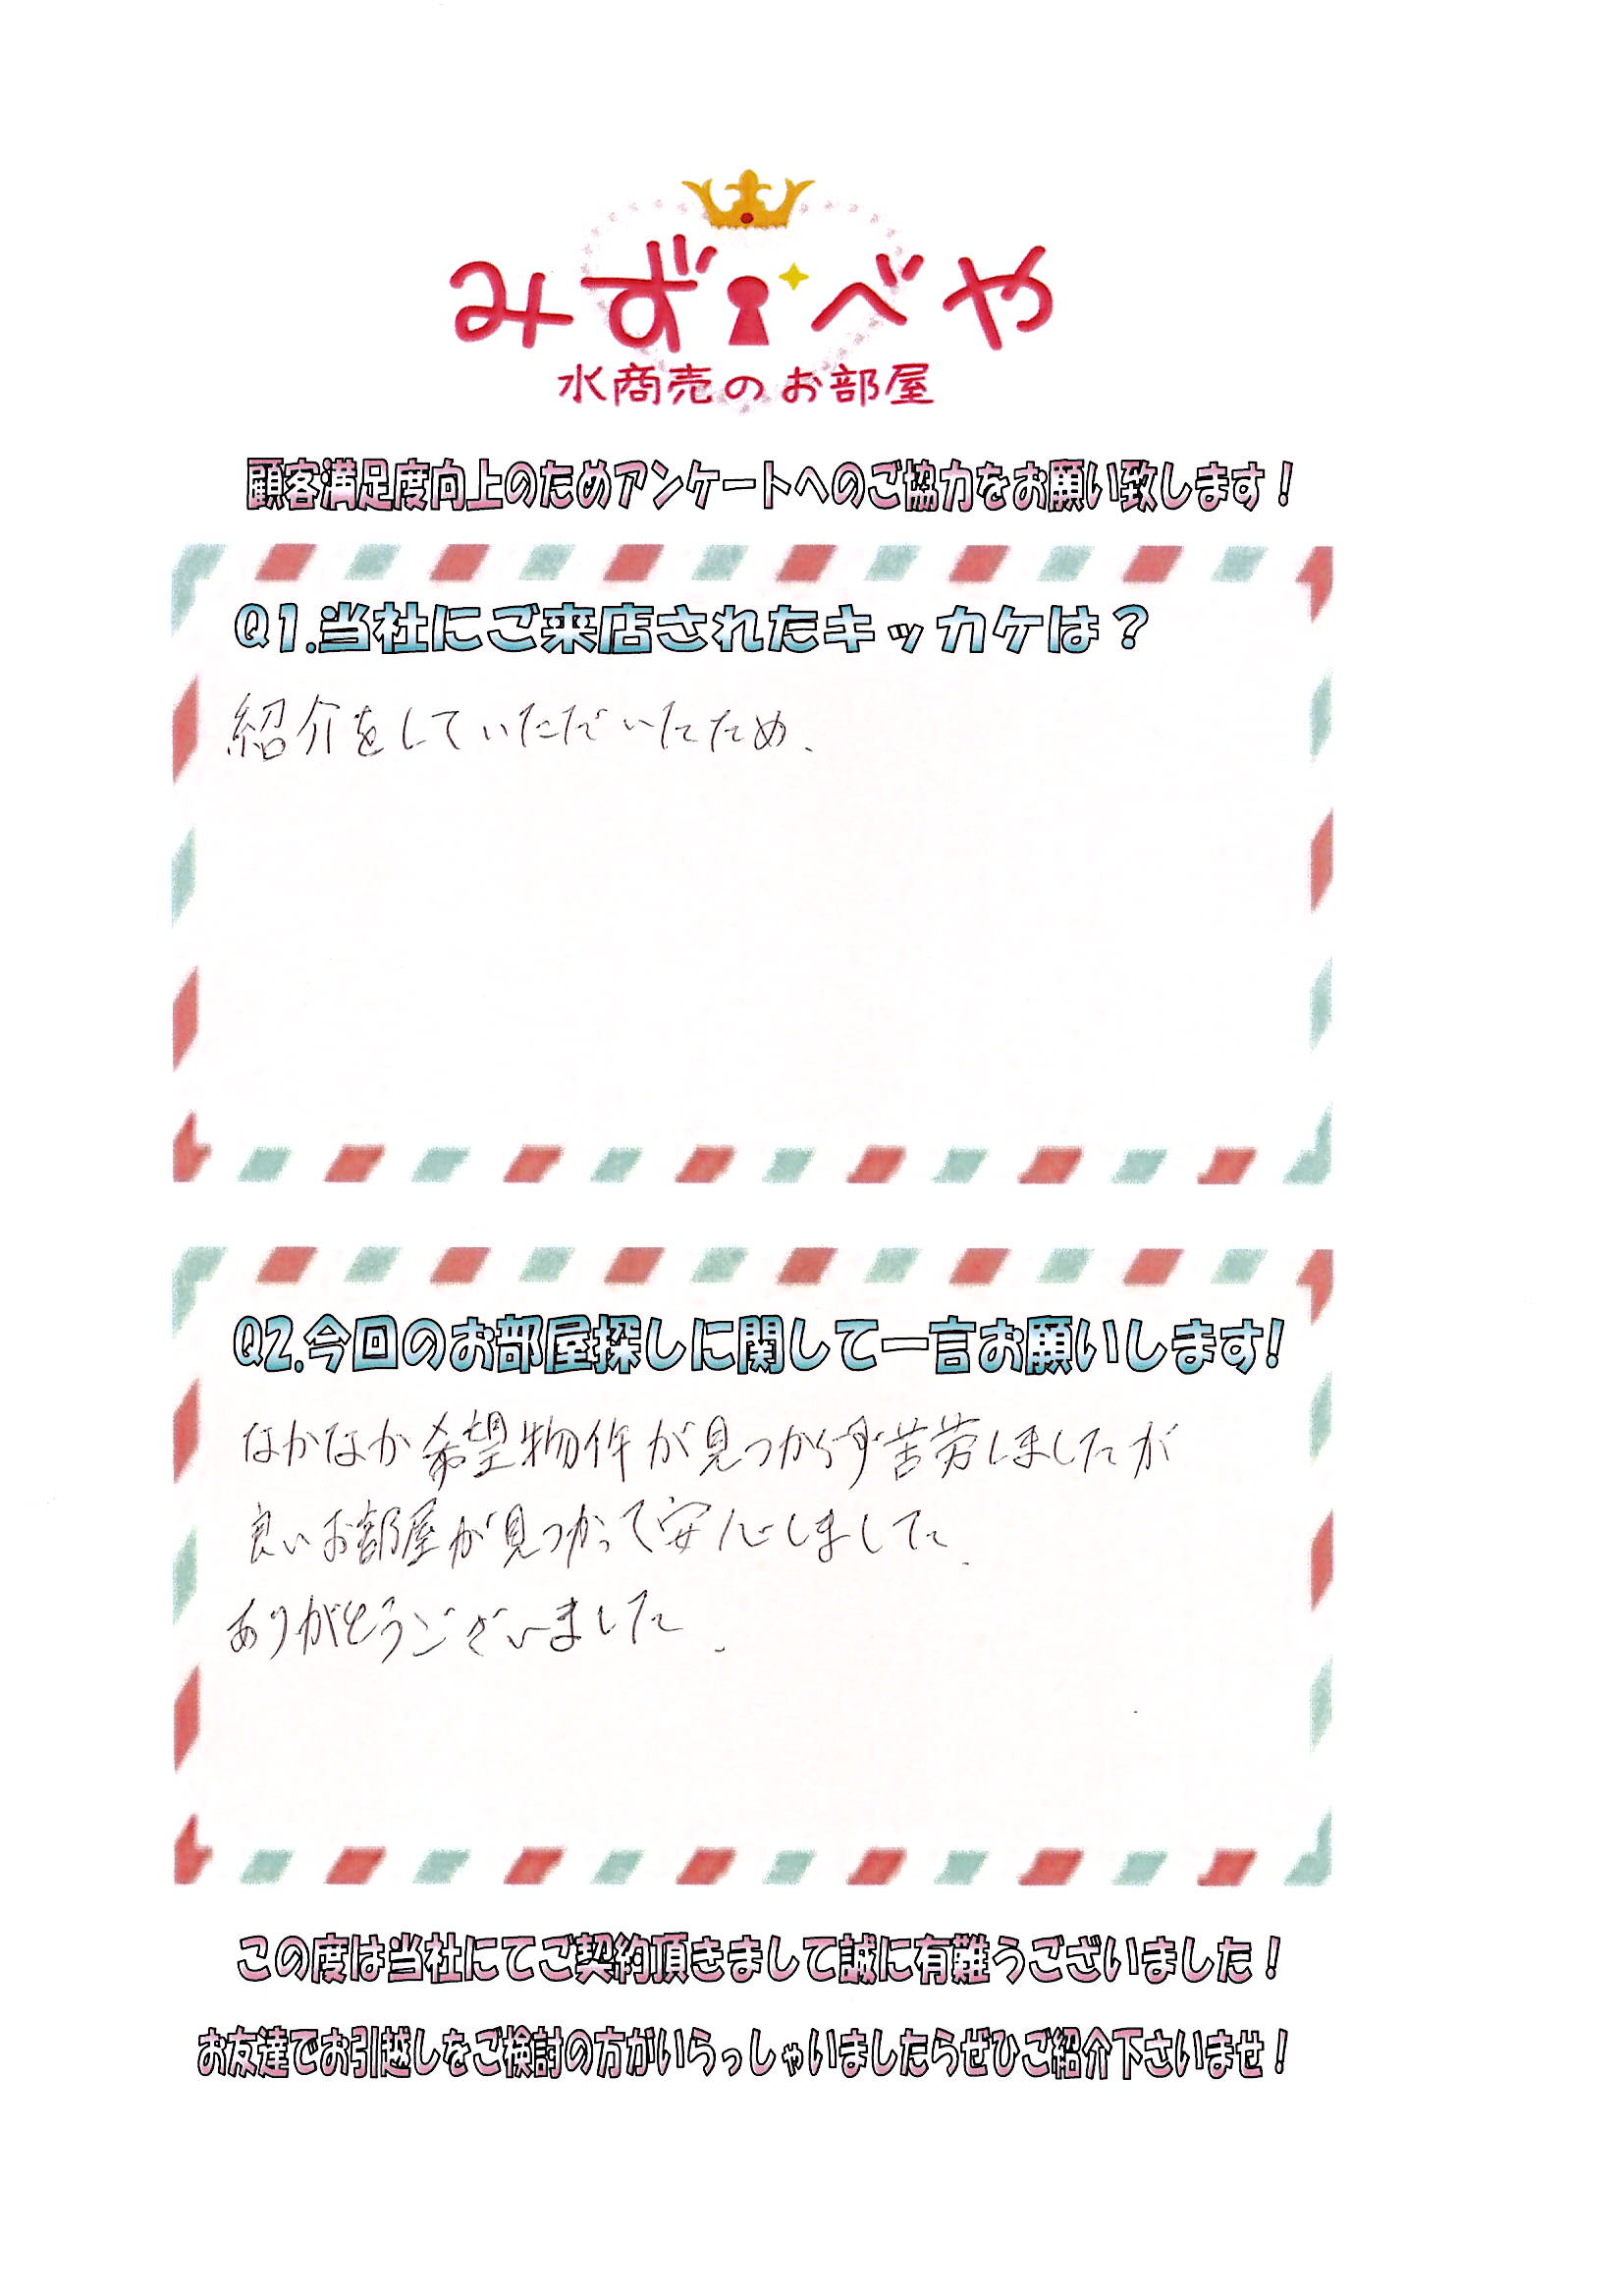 みずべや
水商売のお部屋
顧客満足度向上のためアンケートへのご協力をお願い致します！
Q1.当社にご来店されたキッカケは？
紹介をしていただいたため、
Q2.今回のお部屋探しに関して一言お願いします!
なかなか希望物件が見つからず苦労しましたが
良いお部屋が見つかって安心しました。
ありがとうございました。
この度は当社にてご契約頂きまして誠に有難うございました！
お友達でお引越しをご検討の方がいらっしゃいましたらぜひご紹介下さいませ！